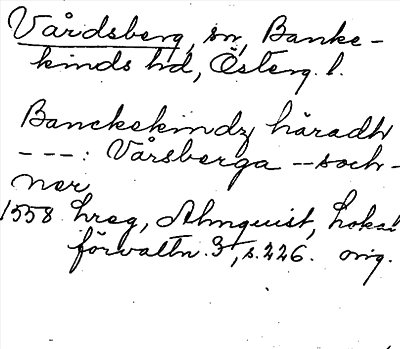 Vårdsberg, sn, Banke-
kinds hd, Österg. l.
Banckekindz häradh
---: Vårsberga -- soch-
ner
1558 hreg, Almquist, Lokal
förvaltn. 3, s. 226. orig.